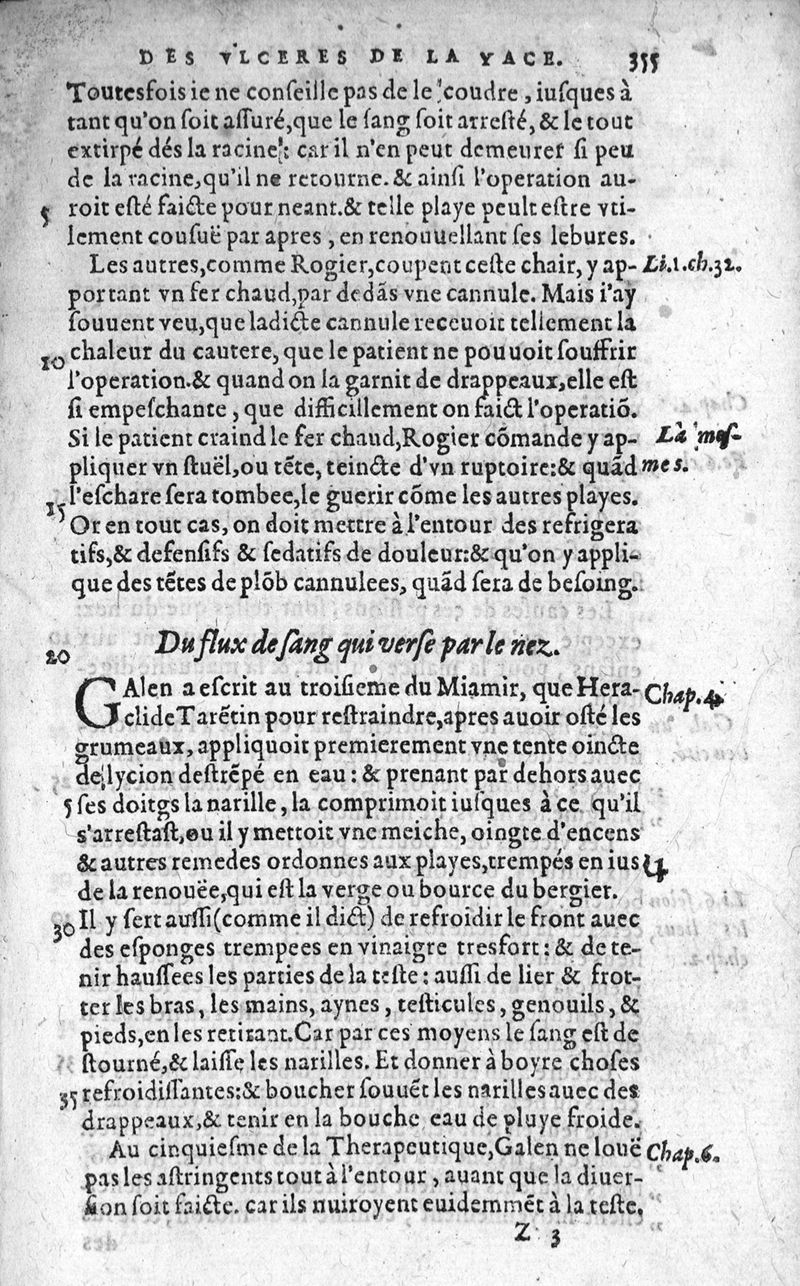 DES VLCERES DE LA YACE. 355
Toutesfois ie ne conſeille pas de le coudre, iuſques à
tant qu'on ſoit aſſuré, que le ſang ſoit arreſté, & le tout
extirpé dés la racine: car il n'en peut demeurer ſi peu
de la racine, qu'il ne retourne. & ainſi l'operation au-
5 roit eſté faicte pour neant. & telle playe peult eſtre vti-
lement couſuë par apres, en renouuellant ſes lebures.
Les autres, comme Rogier, coupent ceſte chair, y ap- Li.1.ch.32.
portant vn fer chaud, par dedãs vne cannule. Mais i'ay
ſouuent veu, que ladicte cannule receuoit tellement la
10 chaleur du cautere, que le patient ne pouuoit ſouffrir
l'operation. & quand on la garnit de drappeaux, elle eſt
ſi empeſchante, que difficillement on faict l'operatiõ.
Si le patient craind le fer chaud, Rogier cõmande y ap- Là meſ-
pliquer vn ſtuël, ou tẽte, teincte d'vn ruptoire: & quãd mes.
15 l'eſchare ſera tombee, le guerir cõme les autres playes.
Or en tout cas, on doit mettre à l'entour des refrigera
tifs, & defenſifs & ſedatifs de douleur: & qu'on y appli-
que des tẽtes de plõb cannulees, quãd ſera de beſoing.
20 Du flux de ſang qui verſe par le nez.
GAlen a eſcrit au troiſieme du Miamir, que Hera- Chap.4.
clide Tarẽtin pour reſtraindre, apres auoir oſté les
grumeaux, appliquoit premierement vne tente oincte
de lycion deſtrẽpé en eau: & prenant par dehors auec
5 ſes doitgs la narille, la comprimoit iuſques à ce qu'il
s'arreſtaſt, ou il y mettoit vne meiche, oingte d'encens
& autres remedes ordonnes aux playes, trempés en ius
de la renouëe, qui eſt la verge ou bource du bergier.
30 Il y ſert auſſi (comme il dict) de refroidir le front auec
des eſponges trempees en vinaigre treſfort: & de te-
nir hauſſees les parties de la teſte: auſſi de lier & frot-
ter les bras, les mains, aynes, teſticules, genouils, &
pieds, en les retirant. Car par ces moyens le ſang eſt de
ſtourné, & laiſſe les narilles. Et donner à boyre choſes
35 refroidiſſantes: & boucher ſouuẽt les narilles auec des
drappeaux, & tenir en la bouche eau de pluye froide.
Au cinquieſme de la Therapeutique, Galen ne louë Chap.6.
pas les aſtringents tout à l'entour, auant que la diuer-
ſion ſoit faicte. car ils nuiroyent euidemmẽt à la teſte,
Z 3